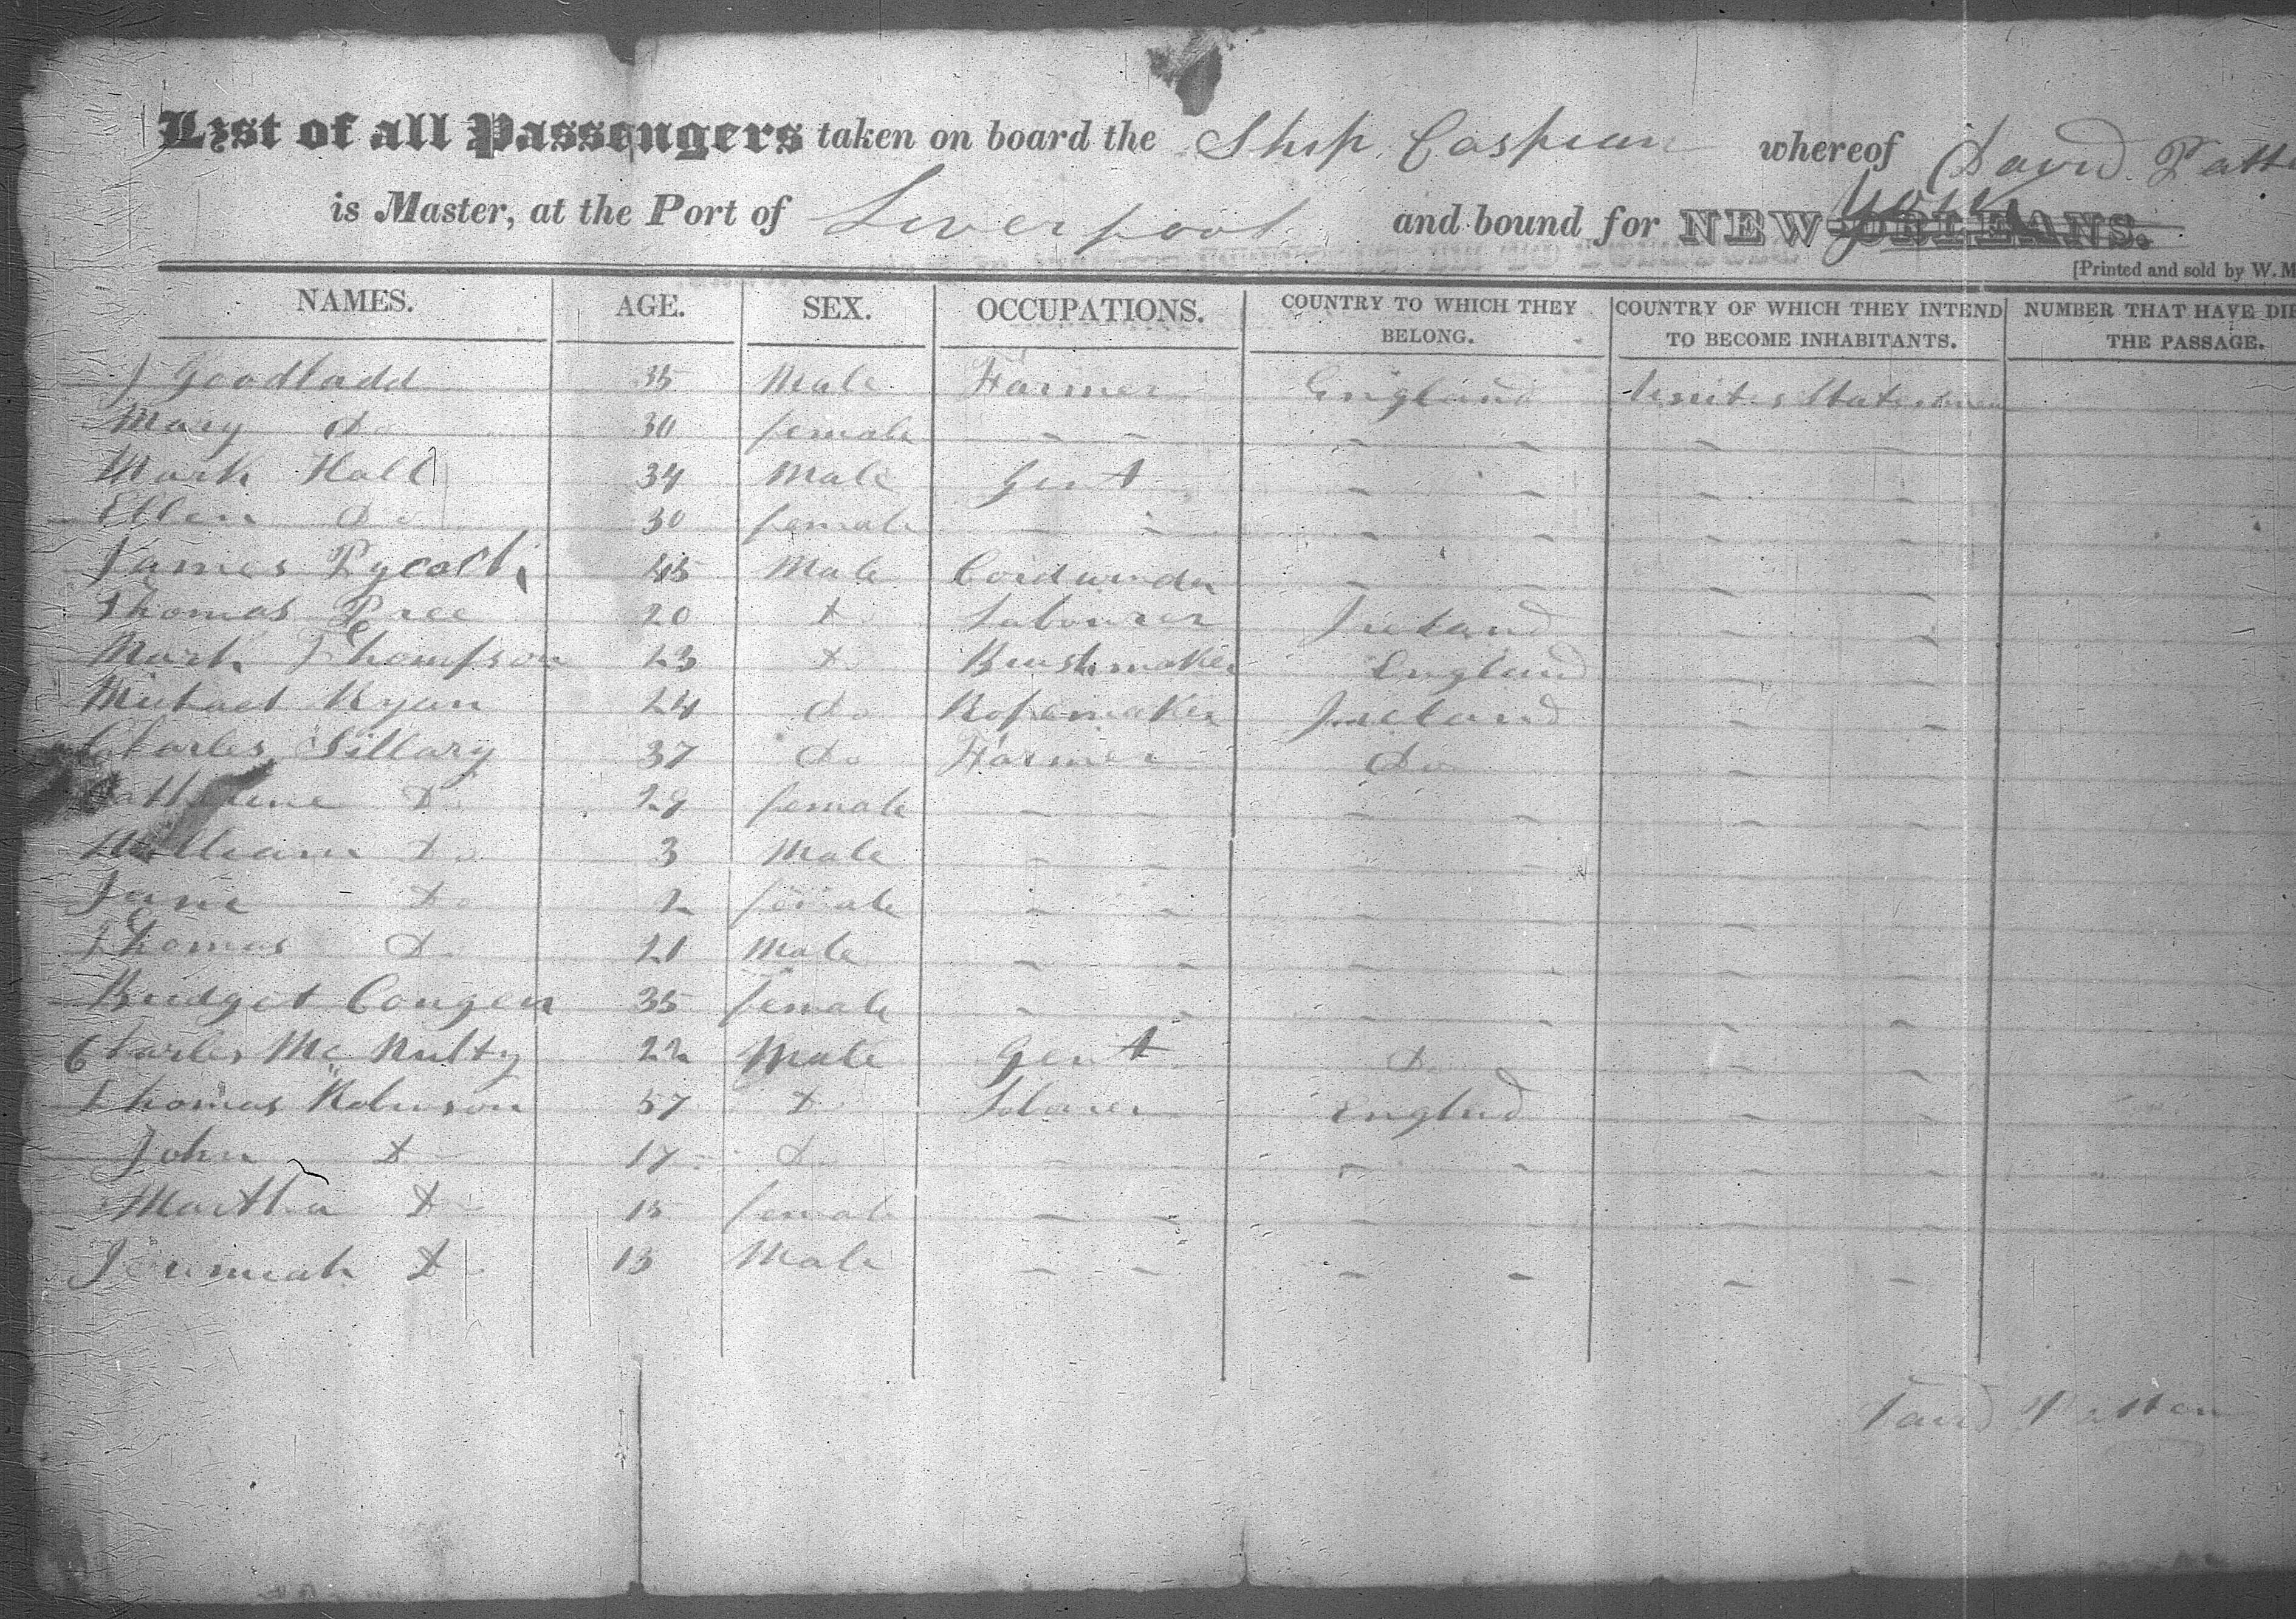 List of all Passengers taken on board the Ship Caspian whereof David Patt
is Master, at the Port of Liverpool and bound for NEW ORLEANS. York
[Printed and sold by W. M
NAMES. AGE. SEX. OCCUPATIONS. COUNTRY TO WHICH THEY BELONG. COUNTRY OF WHICH THEY INTEND TO BECOME INHABITANTS. NUMBER THAT HAVE DIE THE PASSAGE.
J Goodladd 35 Male Farmer England
Mary Do 30 female - - - - - -
Mark Hall 34 Male Gent - - - -
Ellen Do 30 female - - - - - -
James Pycolt 45 Male - - - -
Thomas Pree 20 Do Labourer Ireland - -
Mark Thompson 23 Do Brushmaker England - -
Michael Ryan 24 Do Ropemaker Ireland - -
Charles Sillary 37 Do Farmer Do - -
Catherine Do 28 female - - - - - -
William Do 3 Male - - - - - -
Jane Do 2 female - - - - - -
Thomas Do 21 Male - - - - - -
Bridget Congen 35 female - - - - - -
Charles Mc Nulty 22 Male Gent Do - -
Thomas Robinson 57 Do Laborer Englnd - -
John Do 17 Do - - - - - -
Martha Do 15 female - - - - - -
Jeremiah Do 13 Male - - - - - -
David Patten